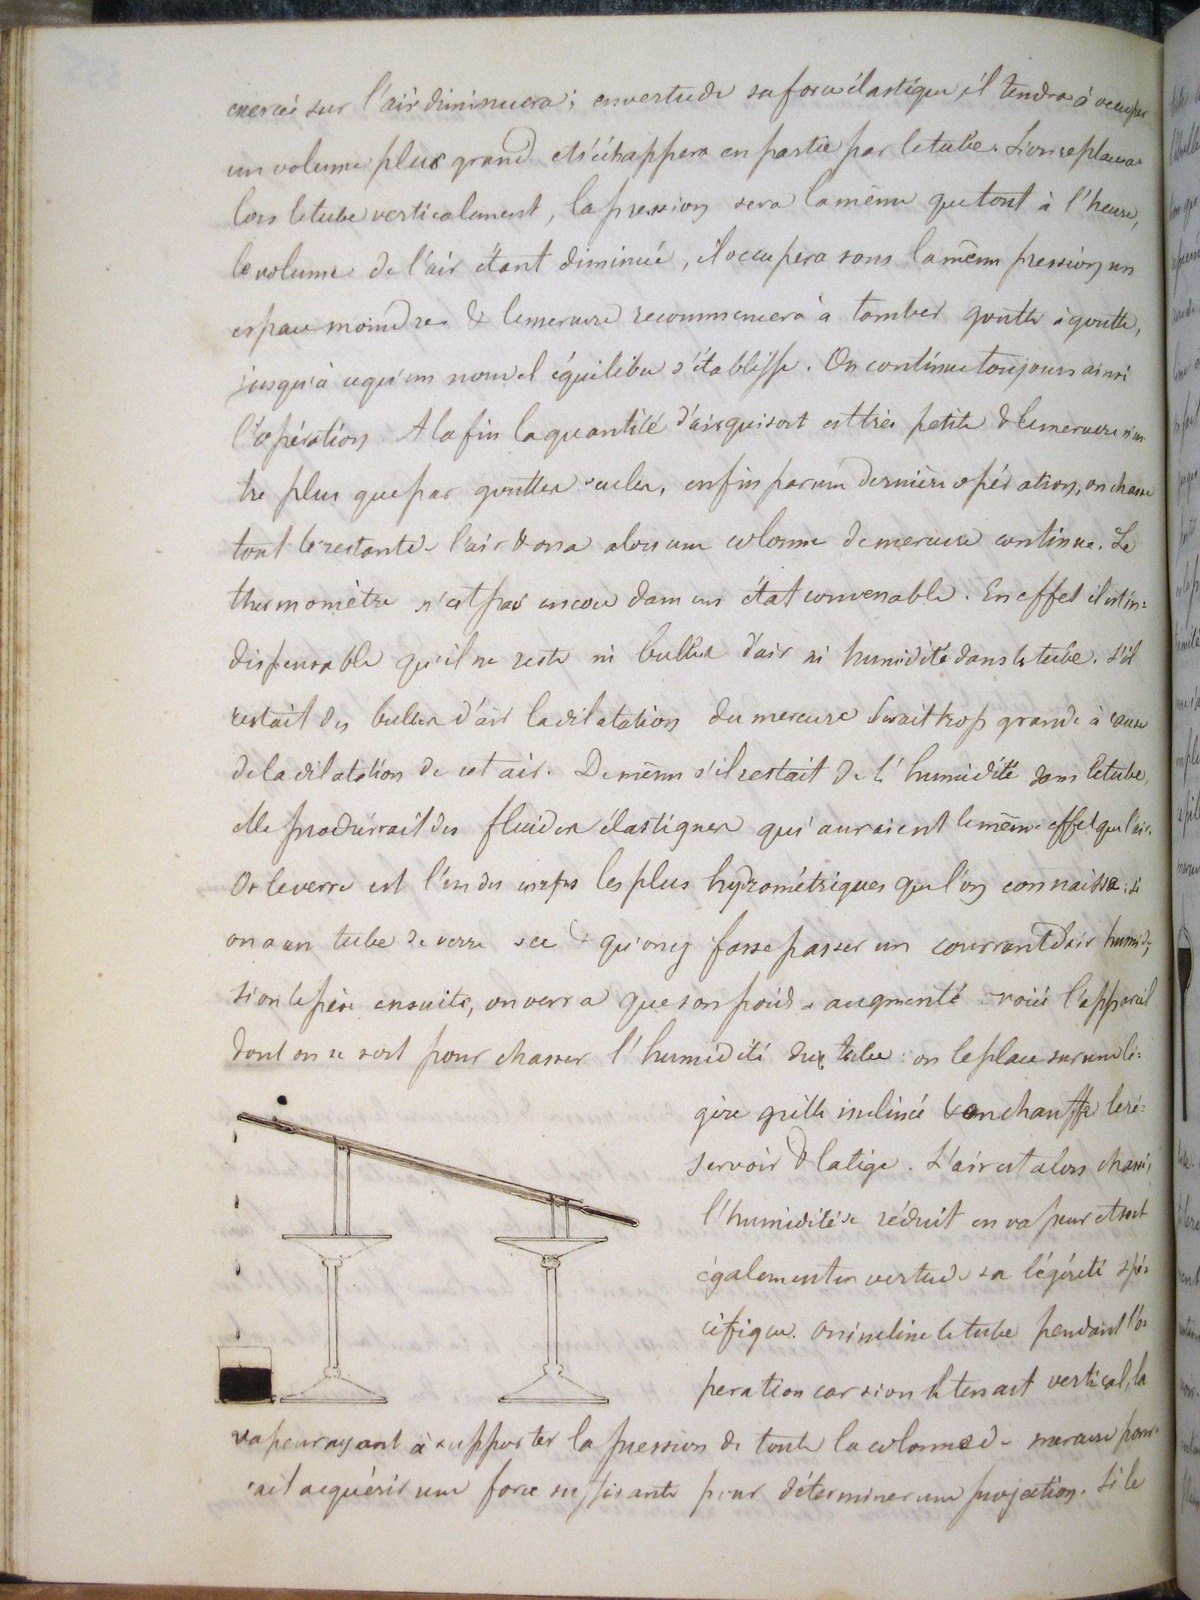 exercée sur l'air diminuera ; en vertu de sa force élastique, il tendra à occuper
un volume plus grand et s'échappera en partie par le tube. Si on replace a-
lors le tube verticalement, la pression sera la même que tout à l'heure,
le volume de l'air étant diminué, il occupera sous la même pression un
espace moindre & le mercure recommencera à tomber goutte à goutte,
jusqu'à ce qu'un nouvel équilibre s'établisse. On continue toujours ainsi
l'opération. A la fin la quantité d'air qui sort est très petite & le mercure n'en
tre plus que par gouttes seules, enfin par une dernière opération, on chasse
tout le restant de l'air & on a alors une colonne de mercure continue. Le
thermomètre n'est pas encore dans un état convenable. En effet il est in=
dispensable qu'il ne reste ni bulles d'air ni humidité dans le tube. S'il
restait des bulles d'air la dilatation du mercure serait trop grande à cause
de la dilatation de cet air. De même s'il restait de l'humidité dans le tube,
elle produirait des fluides élastiques qui auraient le même effet que l'air.
Or le verre est l'un des corps les plus hydrométriques que l'on connaisse : si
on a un tube de verre sec & qu'on y fasse passer un courrant d'air humide,
si on le pèse ensuite, on verra que son poids a augmenté. Voici l'appareil
dont on se sert pour chasser l'humidité du tube : on le place sur une lé=
gère grille inclinée & on chauffe le ré=
servoir & la tige. L'air est alors chassé,
l'humidité se réduit en vapeur et sort
également en vertu de sa légéreté spé=
cifique. On incline le tube pendant l'o=
peration car si on le tenait vertical, la
vapeur ayant à supporter la pression de toute la colonne de mercure pour-
rait acquérir une force suffisante pour déterminer une projection. Si le